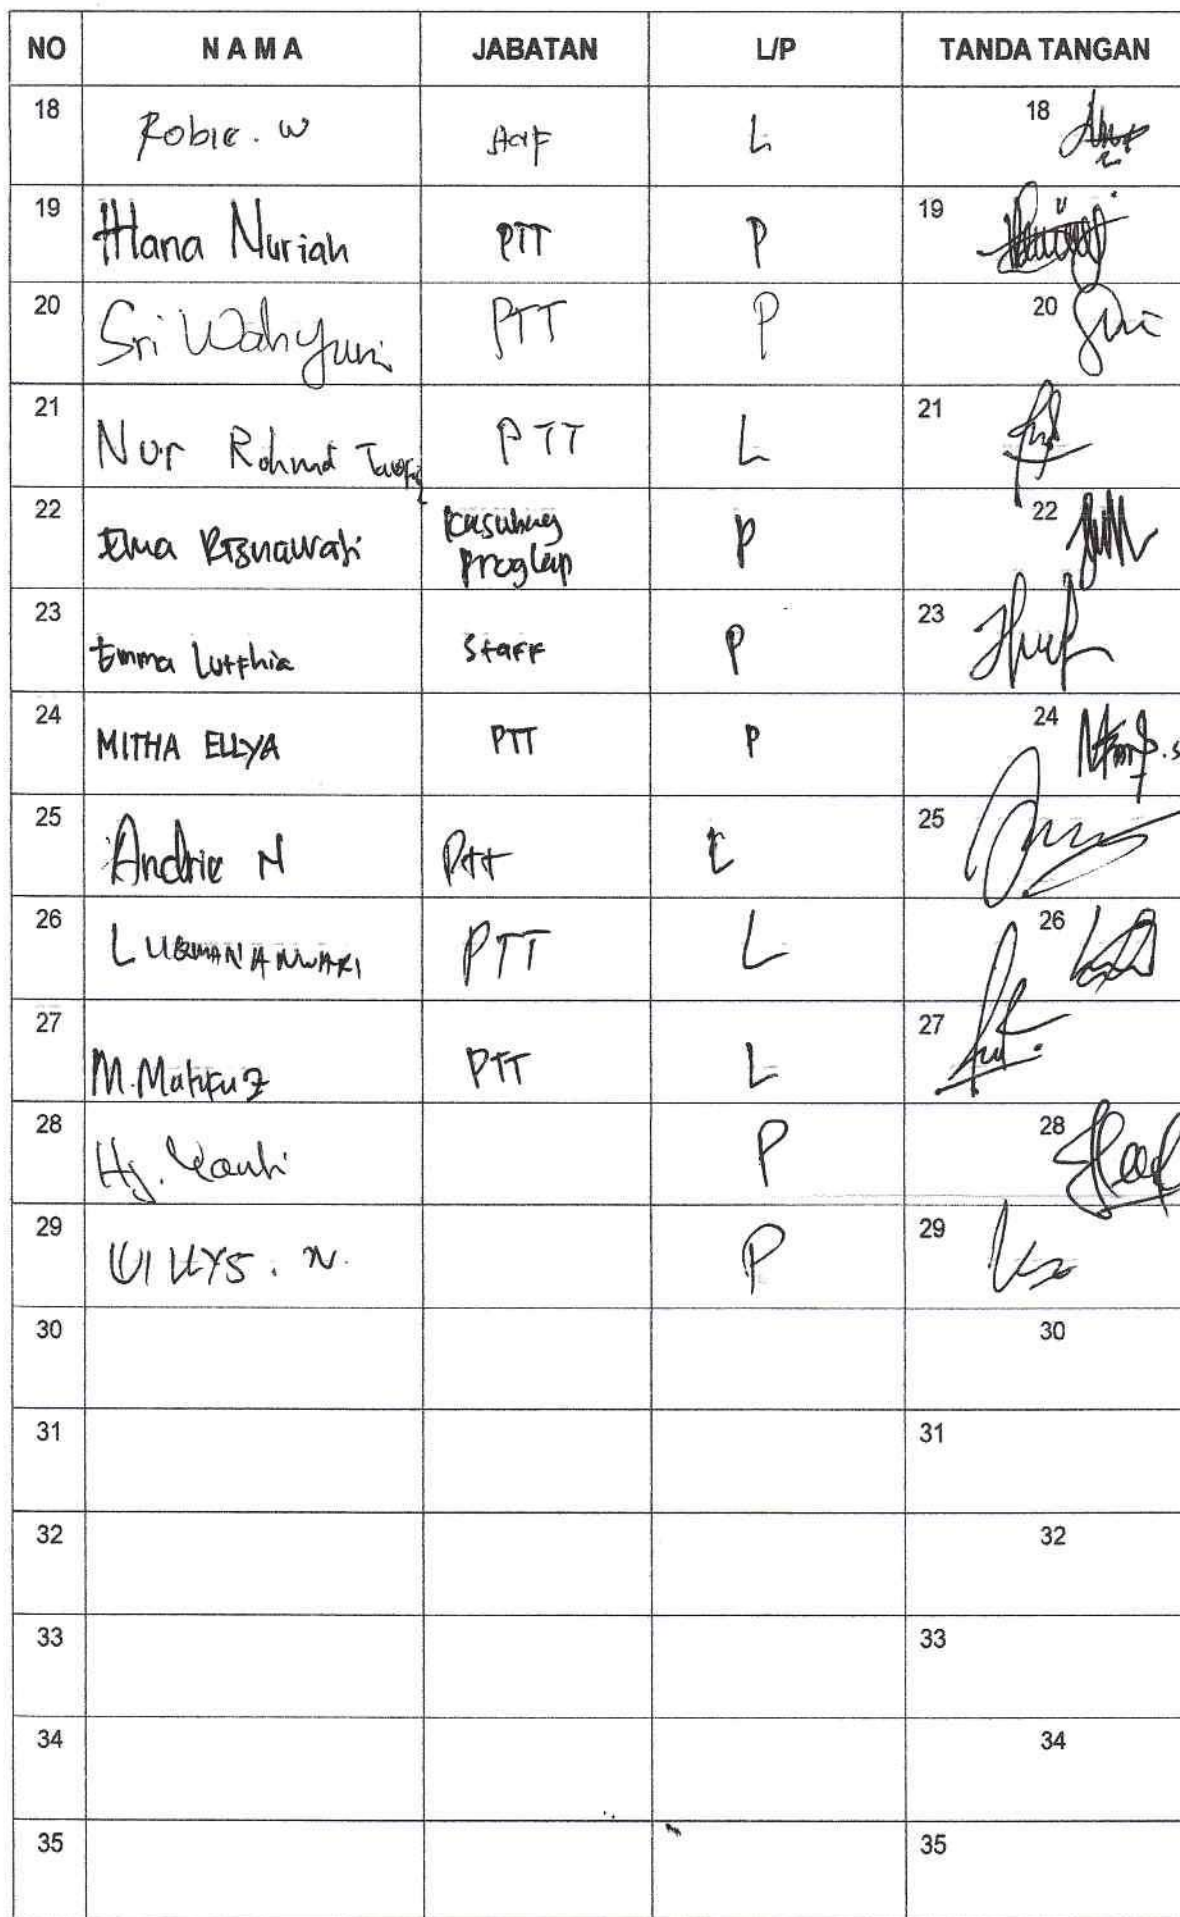 NO NAMA JABATAN L/P TANDA TANGAN
18 Robie. W L 18
19 Hana Nuriah PTT P 19
20 Sri Wahyuni PTT P 20
21 Nur Rohmat Taufiq PTT L 21
22 Risnawati Kasubag P 22
Proglap
23 Emma Lutfhia Staff P 23
24 MITHA ELLYA PTT P 24
25 Andrie N Ptt L 25
26 LUKMAN ANWARI PTT L 26
27 M. Mahfuz PTT L 27
28 Hj. P 28
29 N. P 29
30 30
31 31
32 32
33 33
34 34
35 35